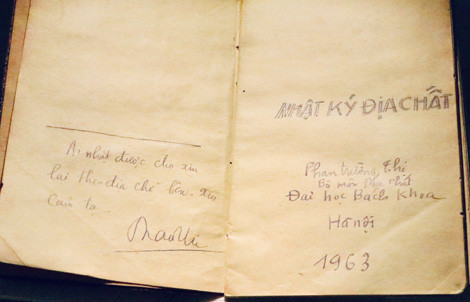 Ai nhặt được cho xin
lại theo địa chỉ bên. Xin
Cảm tạ.
NHẬT KÝ ĐỊA CHẤT
Phan Trường Thị
Bộ môn Địa chất
Đại học Bách Khoa
Hà nội
1963